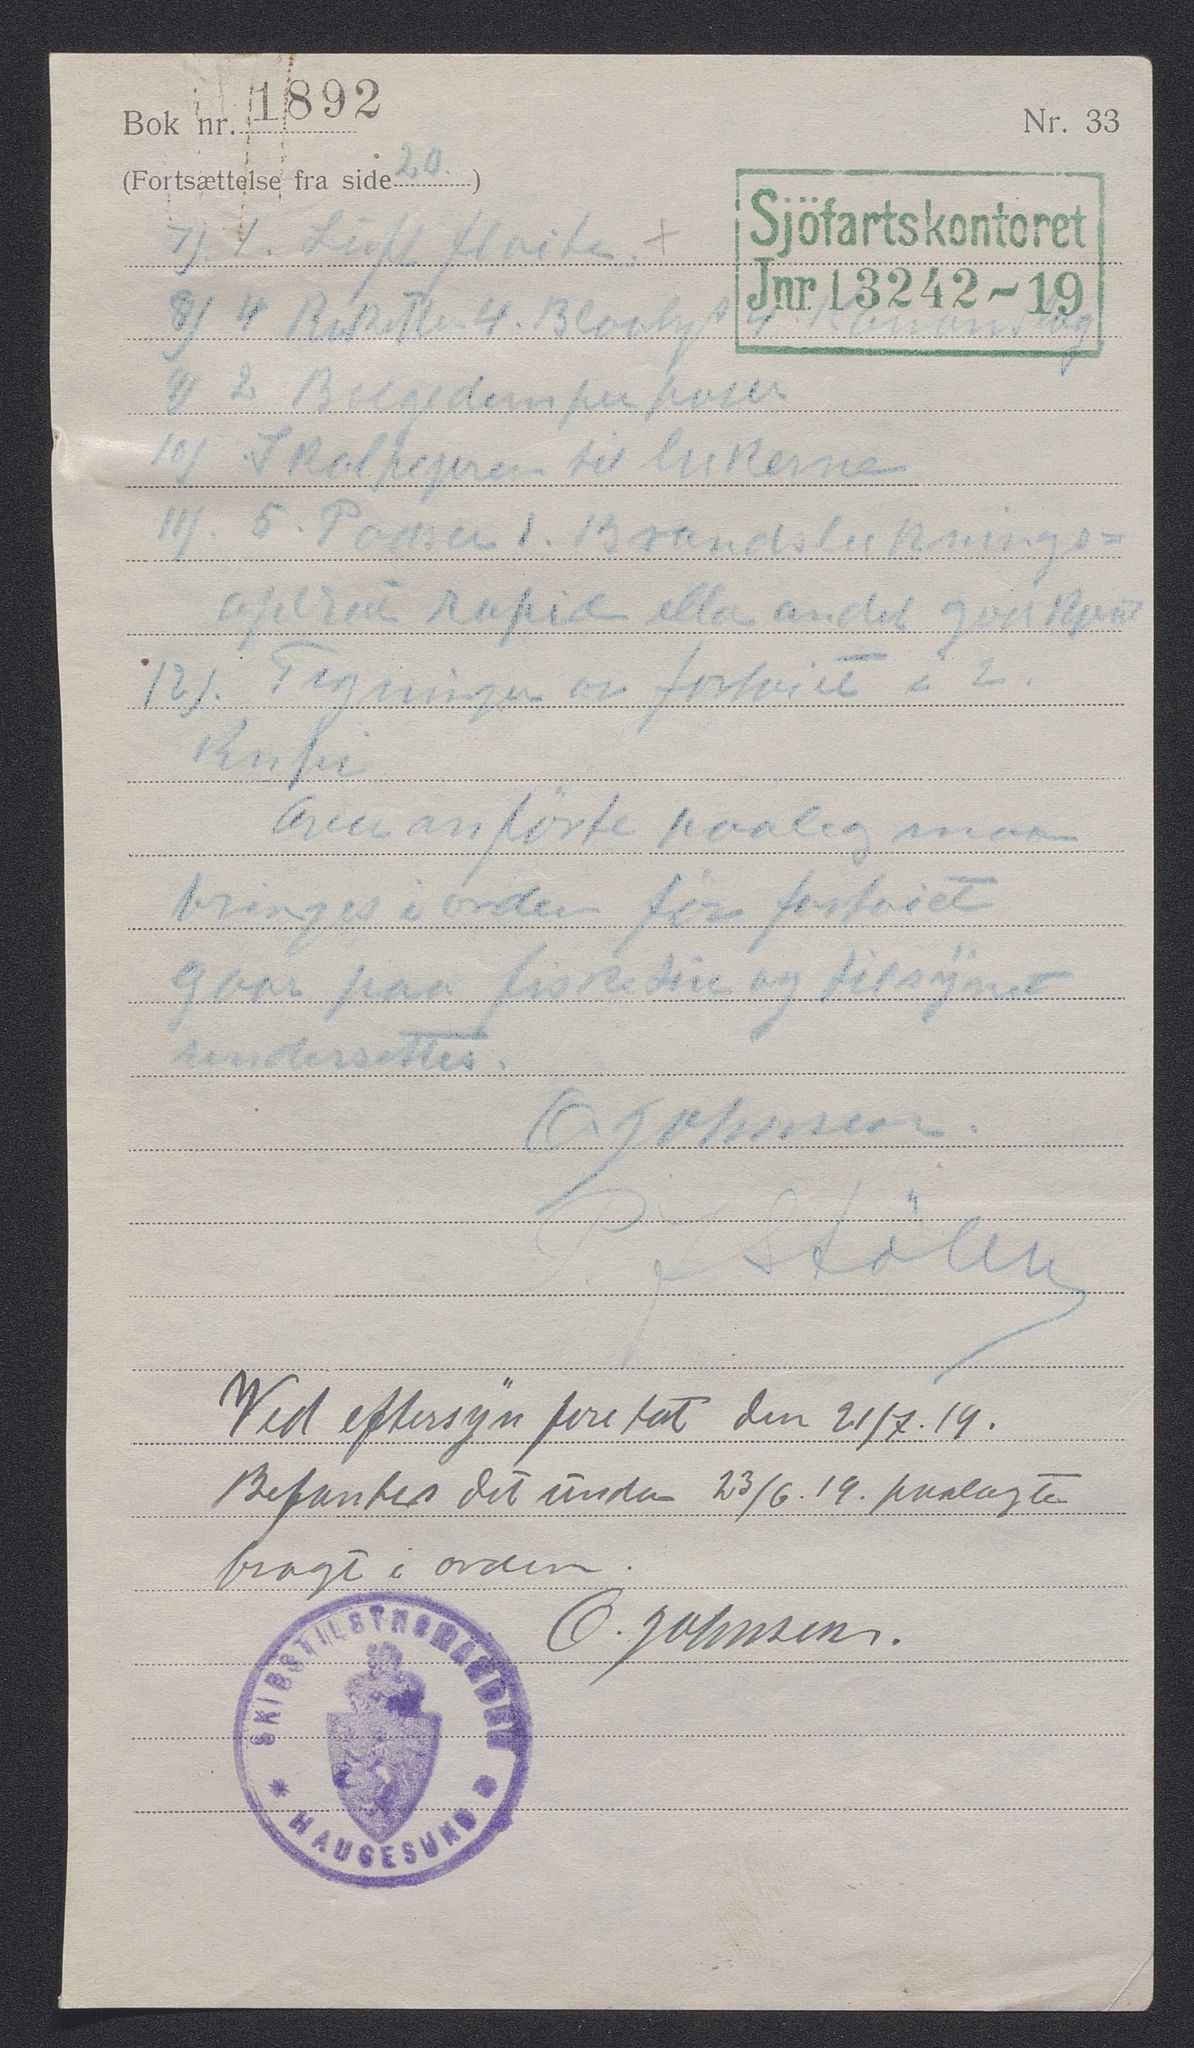 Bok nr. 1892
Nr. 33
(Fortsættelse fra side 20.)
Sjöfartskontoret
Jnr 13242-19
7). 1. Luft floite. +
8) 4 Raketter 4. Blaalys 4 Kanonslag
9) 2 Bølgedemper poser
10) Skalpejern til lukerne
11). 5. Pødser 1. Brandsluknings=
aparat rapid eller andet godkjent
12). Tegninger av fartøiet i 2.
Kopi
Ovenanförte paaleg maa
bringes i orden før fartøiet
gaar paa fiske ture og tilsÿnet
underrettes.
O Johnsen.
P. J Stölen
Ved eftersÿn foretat den 21/7.19.
Befantes det under 23/6.19. paalagte
bragt i orden.
O. Johnsen.
SKIBSTILSYNSMANDEN
* HAUGESUND *